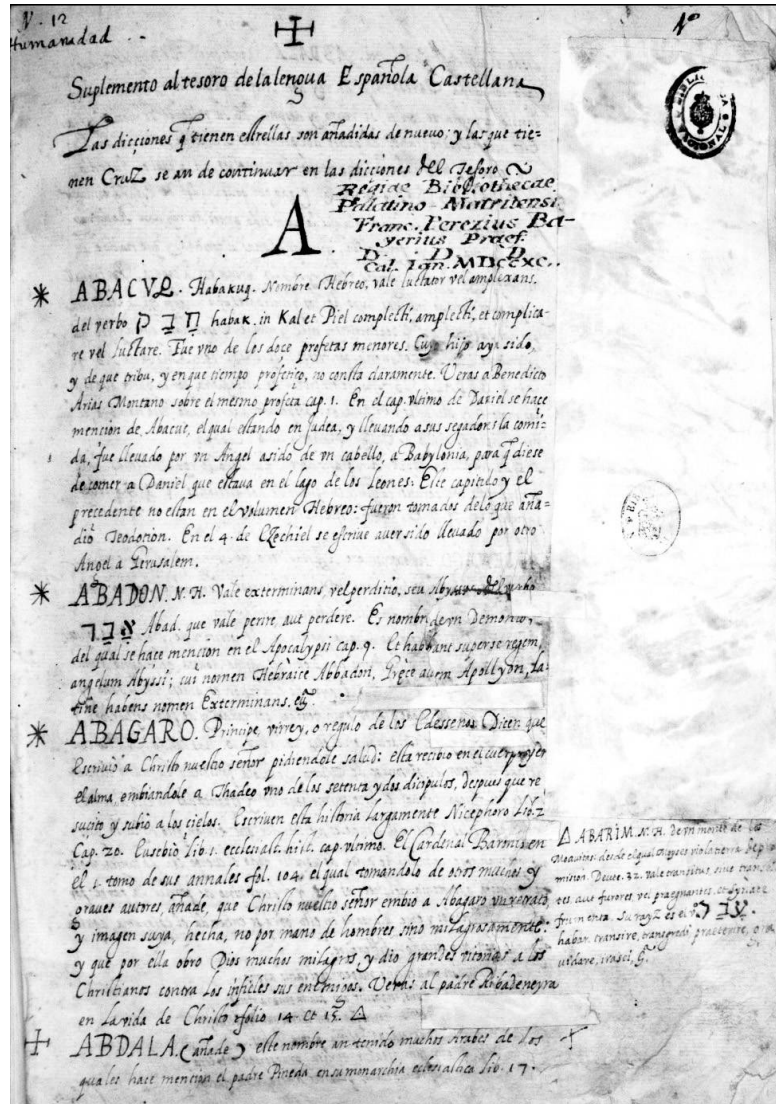 N. 12
Humanidad
Nº
Suplemento al tesoro de la lengua Española Castellana
Las dicciones q̃ tienen estrellas son añadidas de nuevo: y las que tie=
nen Cruz se an de continuar en las dicciones del Tesoro
Regiae Bibliothecae
Palatino-Matritensi
Franc. Perezius Ba-
yerius Praef.
D. D. D.
Cal. Ian. MDCCXC.
A
* ABACVQ. Habakuq. Nombre Hebreo, vale luctator vel amplexans,
del verbo חָבַק habak. in Kal et Piel complecti, amplecti, et complica-
re vel luctare. Fue vno de los doce profetas menores. Cuyo hijo aya sido,
y de que tribu, y en que tiempo profetiço, no consta claramente. Veras a Benedicto
Arias Montano sobre el mesmo profeta cap. 1. En el cap. vltimo de Daniel se hace
mencion de Abacuc, el qual estando en Judea, y llevando a sus segadores la comi=
da, fue llevado por vn Angel asido de vn cabello, a Babylonia, para q̃ diese
de comer a Daniel que estava en el lago de los leones: Este capitulo y el
precedente no estan en el volumen Hebreo: fueron tomados de lo que aña=
dio Teodotion. En el 4. de Ezechiel se escrive aver sido llevado por otro
Angel a Jerusalem.
* ABADON. N. H. Vale exterminans, vel perditio, seu Abyssus del verbo
אָבַד Abad. que vale perire, aut perdere. Es nombre de vn Demonio,
del qual se hace mencion en el Apocalypsi cap. 9. Et habebant super se regem,
angelum Abyssi; cui nomen Hebraice Abbadon, Grece autem Apollyon, La-
tine habens nomen Exterminans.
* ABAGARO. Principe, virrey, o regulo de los Edessenos Dicen que
Escrivio a Christo nuestro señor pidiendole salud: esta recibio en el cuerpo y en
el alma, embiandole a Thadeo vno de los setenta y dos dicipulos, despues que re
sucito y subio a los cielos. Escriven esta historia largamente Nicephoro Lib. 2
Cap. 20. Eusebio lib. 1. ecclesiast. hist. cap. vltimo. El Cardenal Baronis en
el 1. tomo de sus annales fol. 104. el qual tomandolo de otros muchos y
graves autores, añade, que Christo nuestro señor embio a Abagaro vn retrato
y imagen suya, hecha, no por mano de hombres sino milagrosamente:
y que por ella obro Dios muchos milagros, y dio grandes vitorias a los
Christianos contra los infieles sus enemigos. Veras al padre Ribadeneyra
en la vida de Christo folio 14. et 15. Δ
ABDALA. (añade) este nombre an tenido muchos Arabes de los
quales hace mencion el padre Pineda en su monarchia ecclesiastica lib. 17.
Δ ABARIM. N. H. de vn monte de los
Moavitas: desde el qual Moyses vio la tierra de pro
mision. Deute. 32. vale transitus, sive transeun
tes, aut furores, vel praegnantes, et Syriace
frumenta. Su rayz es el vº עָבַר
habar. transire, transgredi praeterire, gra
vidare, irasci,